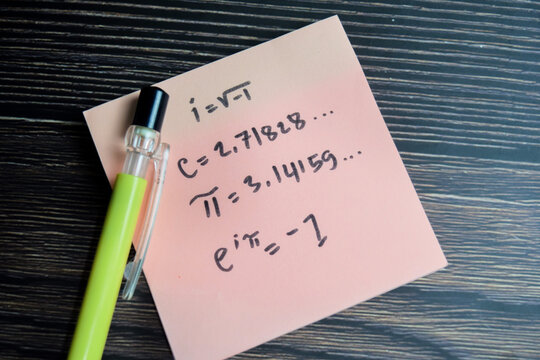 i=√-1
C=2.71828...
π=3.14159...
e^iπ=-1